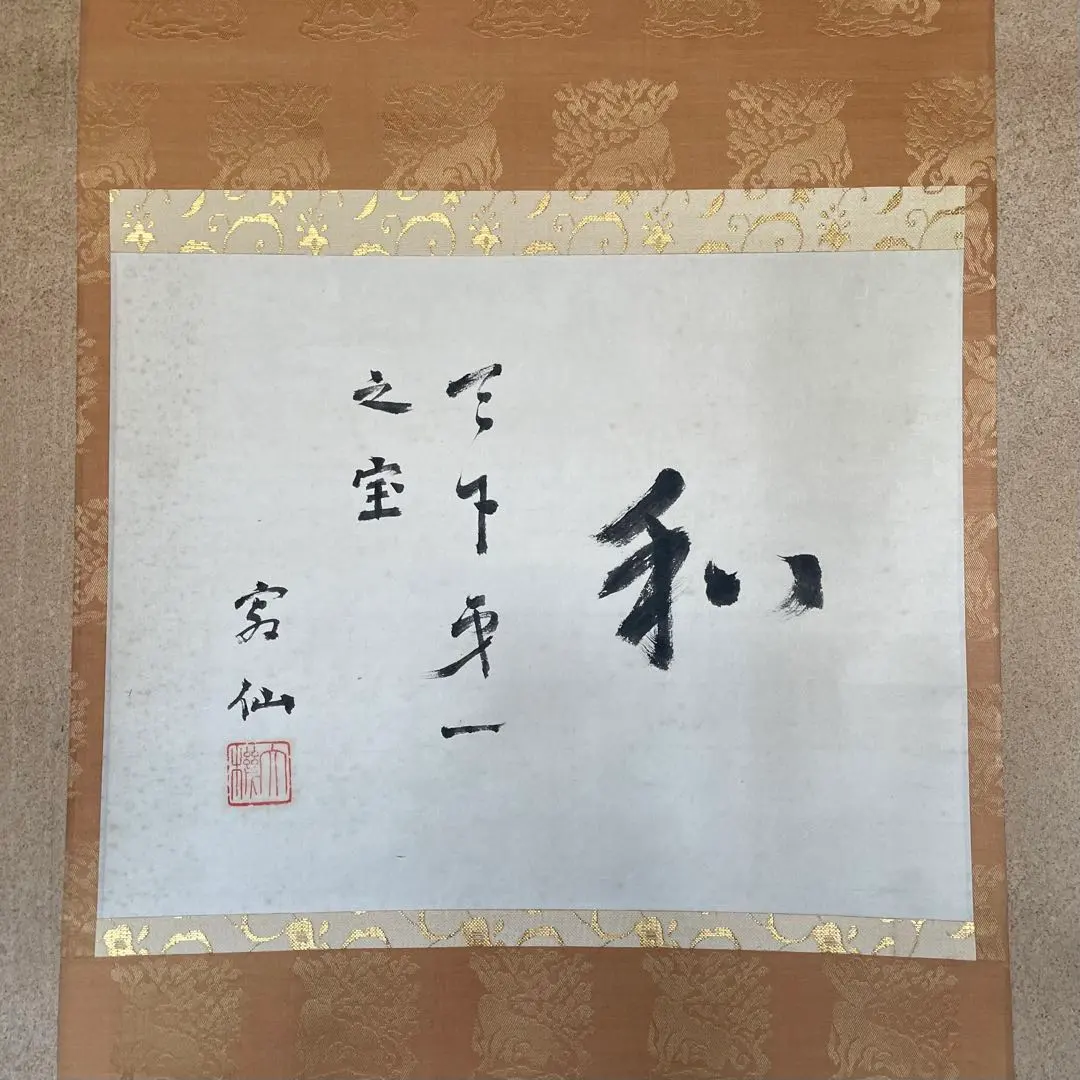 和
天下第一
之宝
仙
大機